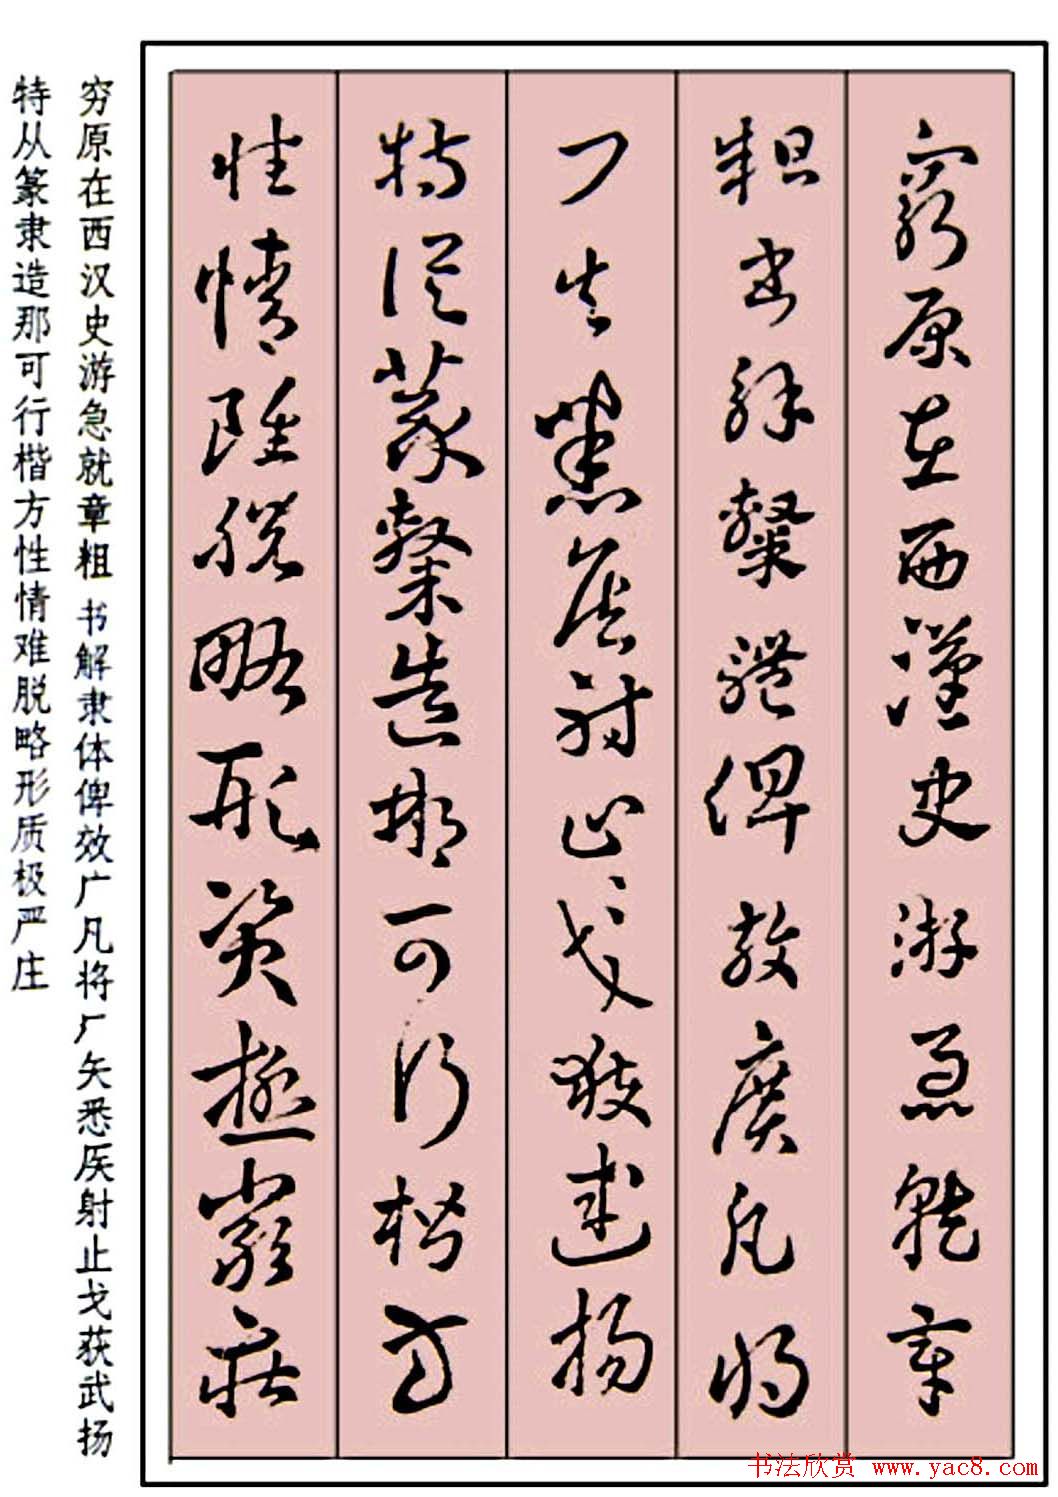 窮原在西漢史游急就章
粗書解隸體俾效廣凡將
厂矢悉矦射止戈獲武揚
特從篆隸造那可行楷方
性情難脫略形質極嚴莊
穷原在西汉史游急就章粗 书解隶体俾效广凡将厂矢悉矦射止戈获武扬
特从篆隶造那可行楷方性情难脱略形质极严庄
书法欣赏 www.yac8.com